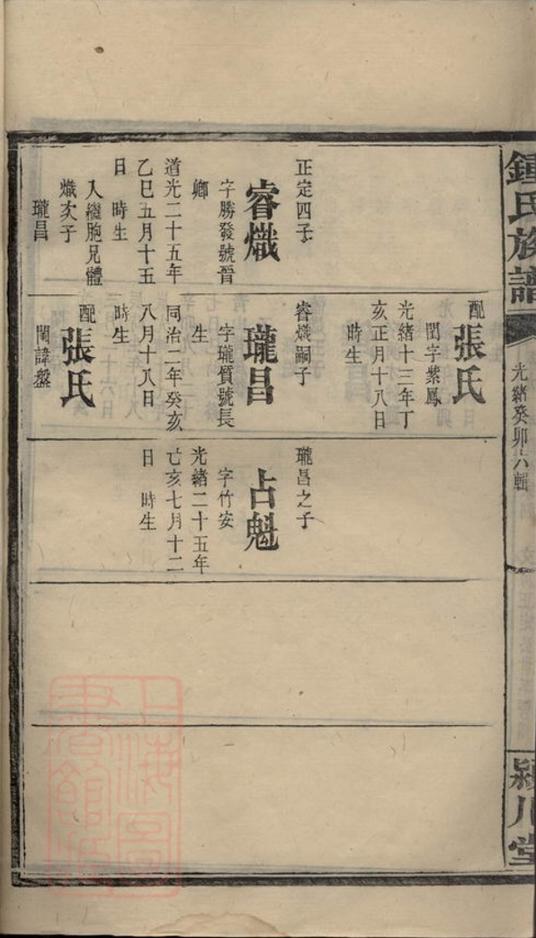 鍾氏族譜
光緒癸卯六輯
潁川堂
正定四子
睿熾
字勝發號晉
卿
道光二十五年
乙巳五月十五
日 時生
入繼胞兄體
熾次子
瓏昌
配張氏
閏字紫鳳
光緒十三年丁
亥正月十八日
時生
睿熾嗣子
瓏昌
字瓏質號長
生
同治二年癸亥
八月十八日
時生
配張氏
閨諱盤
瓏昌之子
占魁
字竹安
光緒二十五年
亡亥七月十二
日 時生
上海圖書館藏